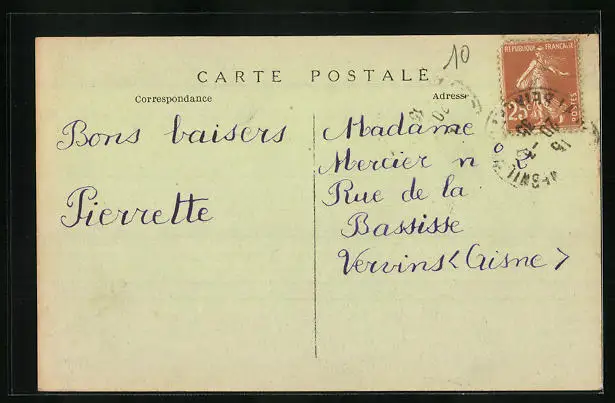 10
CARTE POSTALE
Correspondance
Adresse
RÉPUBLIQUE FRANÇAISE
POSTES
Bons baisers
Pierrette
Madame
Mercier nº 2
Rue de la
Bassisse
Vervins (Aisne)